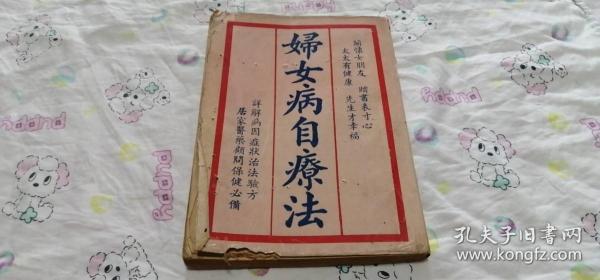 關懷女朋友 贈書表寸心
太太有健康 先生才幸福
婦女病自療法
詳解病因症狀治法驗方
居家醫藥顧問保健必備
孔夫子旧书网